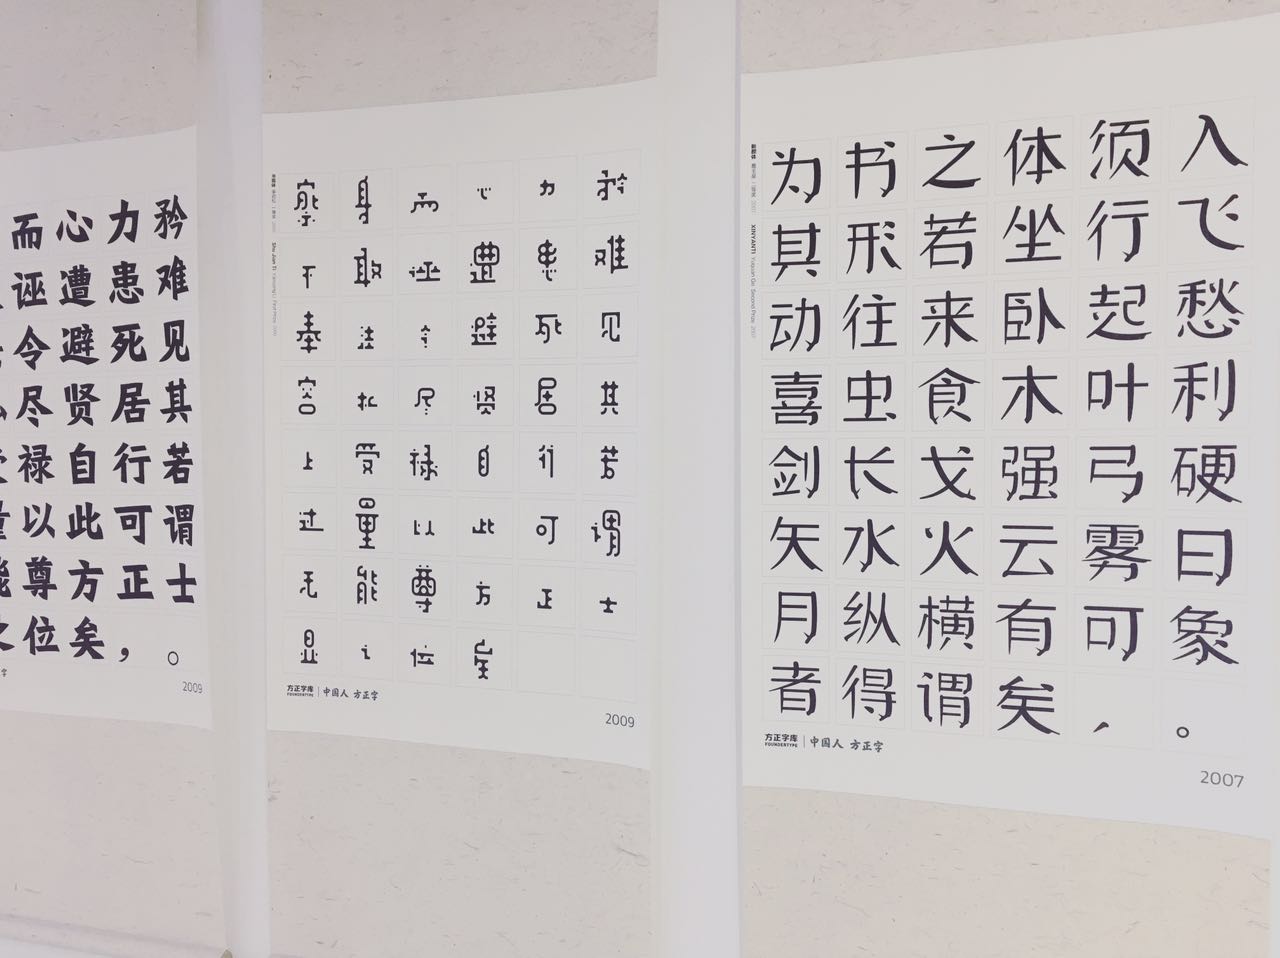 而心力矜
诬遭患难
令避死见
尽贤居其
禄自行若
以此可谓
尊方正士
位矣,。
2009
Shu Jian Ti
察身而心力矜
下敢诬遭患难
奉法令避死见
容私尽贤居其
上受禄自行若
过量以此可谓
无能尊方正士
显之位
方正字库
FOUNDERTYPE
中国人 方正字
2009
XINYANTI Yuquan Ge Second Prize 2007
为书之体须入
其形若坐行飞
动往来卧起愁
喜虫食木叶利
剑长戈强弓硬
矢水火云雾曰
月纵横有可象
者得谓矣,。
方正字库
FOUNDERTYPE
中国人 方正字
2007